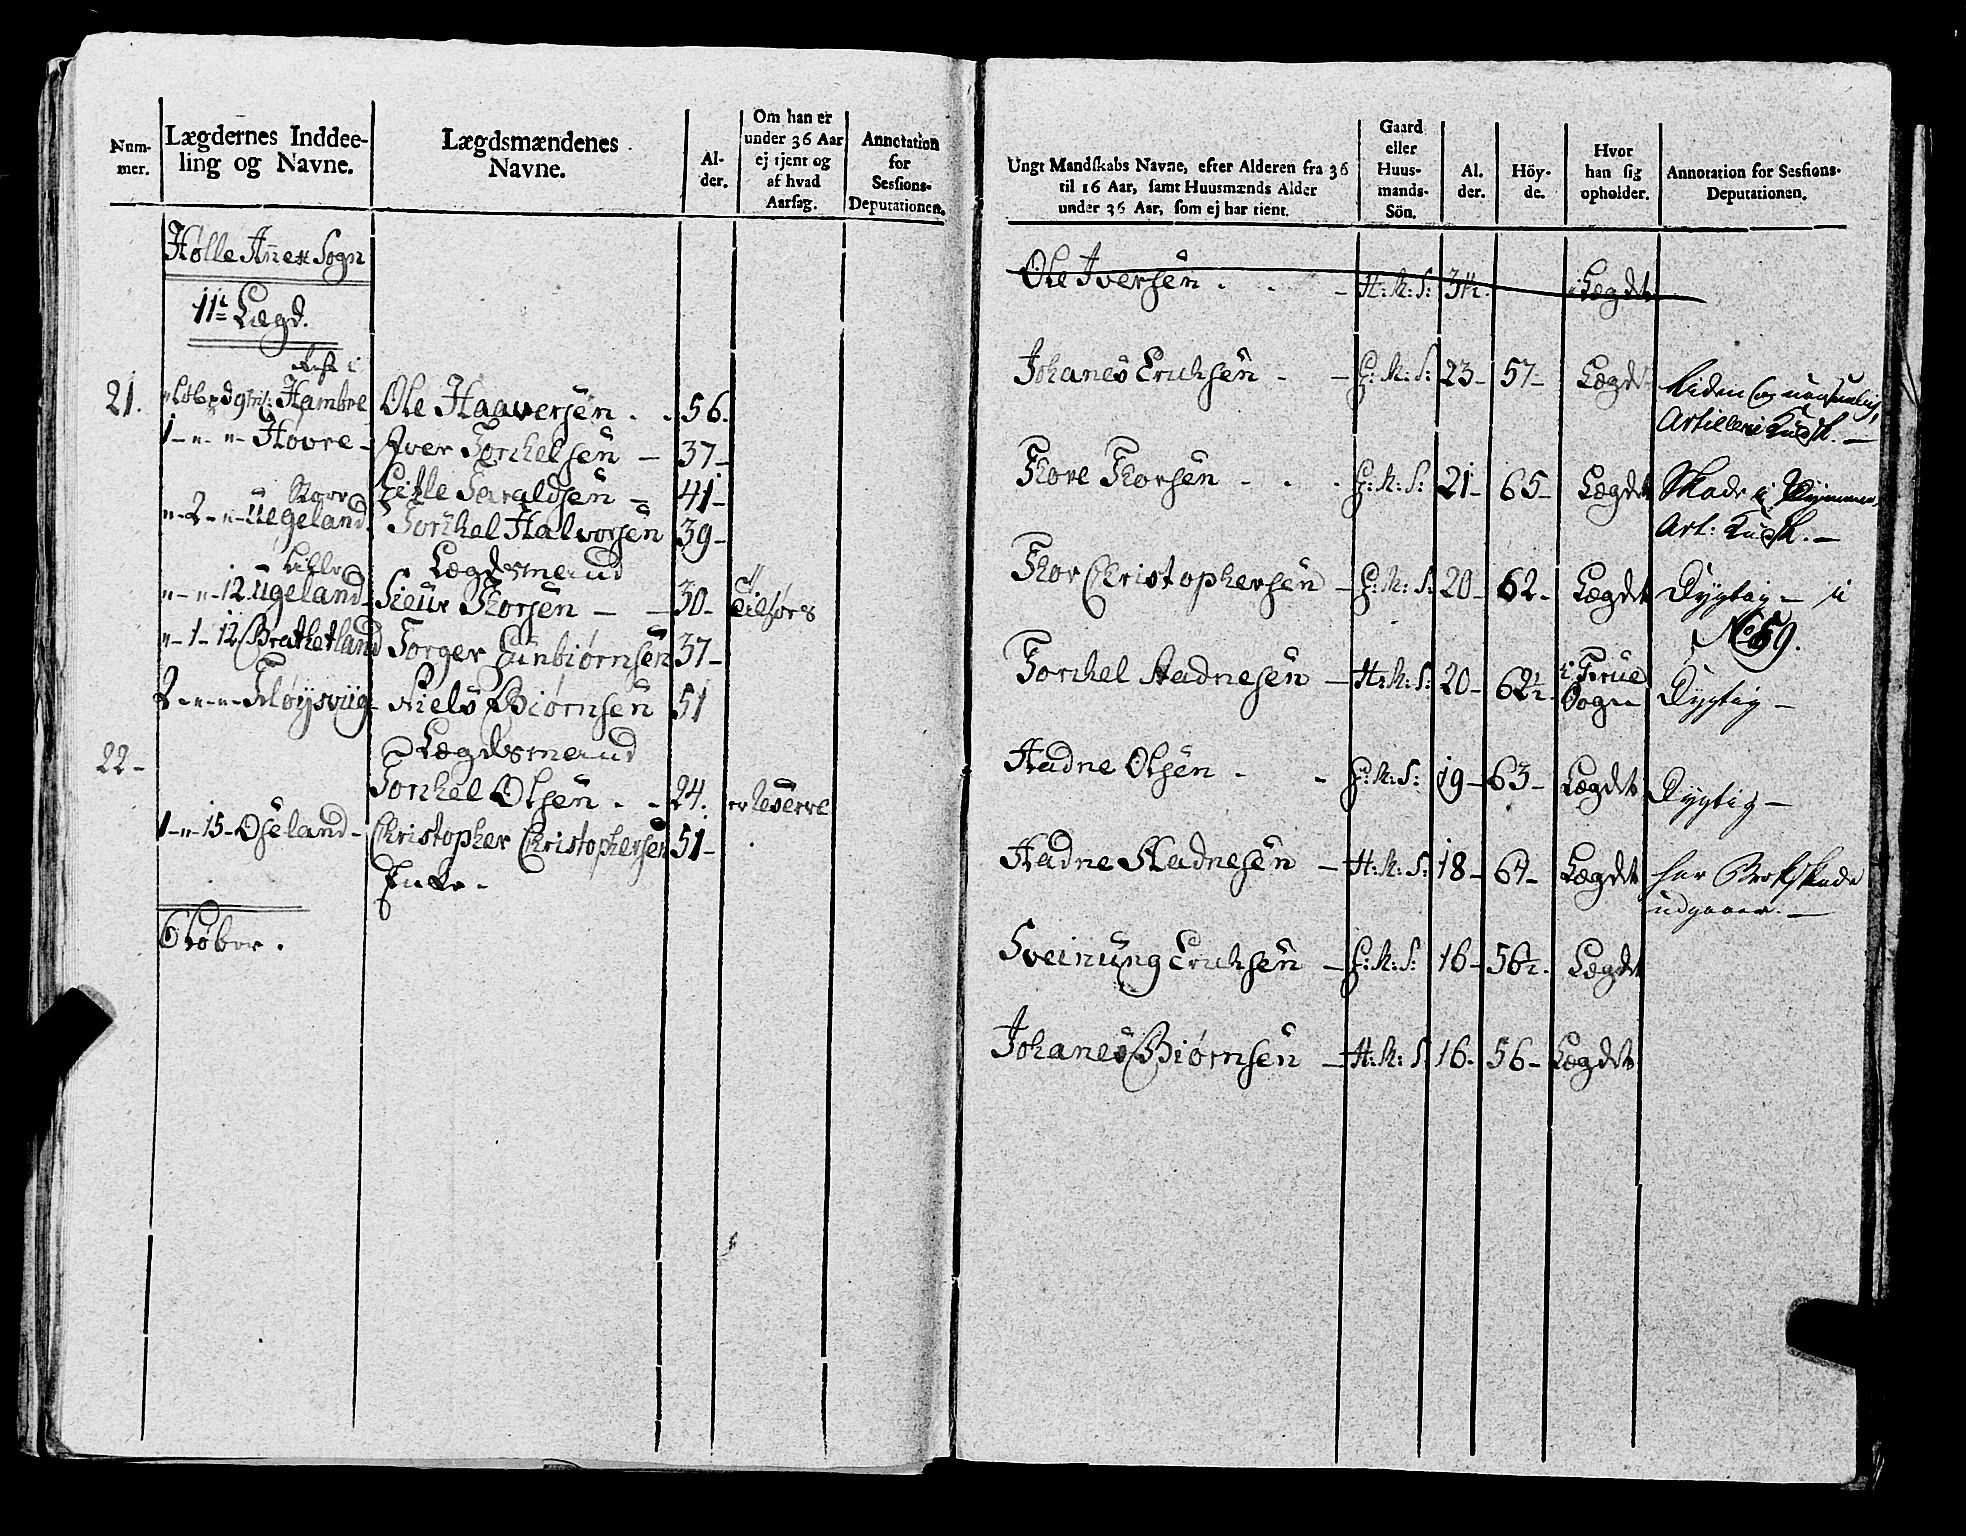 Num-
mer.
Lægdernes Inddee-
ling og Navne.
Lægdsmændenes
Navne.
Al-
der.
Om han er
under 36 Aar
ej tjent og
af hvad
Aarsag.
Annotation
for
Sessions-
Deputationen.
Hølle Anex Sogn
11te Lægd.
21. Hambre Ole Haaversen 56.
1 - " - " - Høvre - Iver Torchelsen - 37 -
Tarald­sen - 41 -
Store
" - 2 - " - Uegeland Torchel Halvorsen 39 -
Lille Lægdsmand
" - " - 12 Ugeland - Sieur Thorsen - - 30 -
" - 1 - 12 Brathetland Torger Gunbiørnsen 37 -
2 - " - " - Fløysviig - Niels Biørnsen 51
22 - Lægdsmand
Torchel Olsen . . 24. er Reserve
1 - " - 15 - Øseland - Christopher Christophersen 51 -
Enke -
Ungt Mandskabs Navne, efter Alderen fra 36
til 16 Aar, samt Huusmænds Alder
under 36 Aar, som ej har tient.
Gaard
eller
Huus-
mands-
Sön.
Al.
der.
Höy-
de.
Hvor
han sig
opholder.
Annotation for Sessions-
Deputationen.
Ole Iversen . . - H: M: S: Lægdt
Johanes Erichsen . - G: M: S: 23 - 57 - Lægdt liden og uanseelig
Artillerie Kudsk. -
Thore Thorsen - . . G: M: S: 21 - 65 - Lægdt Skade i
Art: Kudsk. -
Thor Christophersen - G: M: S: 20 - 62 - Lægdt Dygtig - i
No 59.
Torchel Aadnesen - H: M: S: 20 - 62½ - i Finne
Sogn Dygtig -
Aadne Olsen . - G: M: S: 19 - 63 - Lægdt Dygtig -
Aadne Aadnesen - H: M: S: 18 - 64 - Lægdt har Brokskade
udgaaer. -
Sveinung Erichsen - G: M: S: 16 - 56½. Lægdt
Johanes Biørnsen - H: M: S 16 - 56 - Lægdt